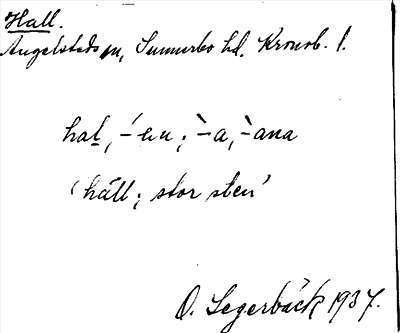 Hall.
Angelstads sn, Sunnerbo hd. Kronob. l.
hal, -́en ; -̀a, -̀ana
'häll ; stor sten'
O. Segerbäck 1937.